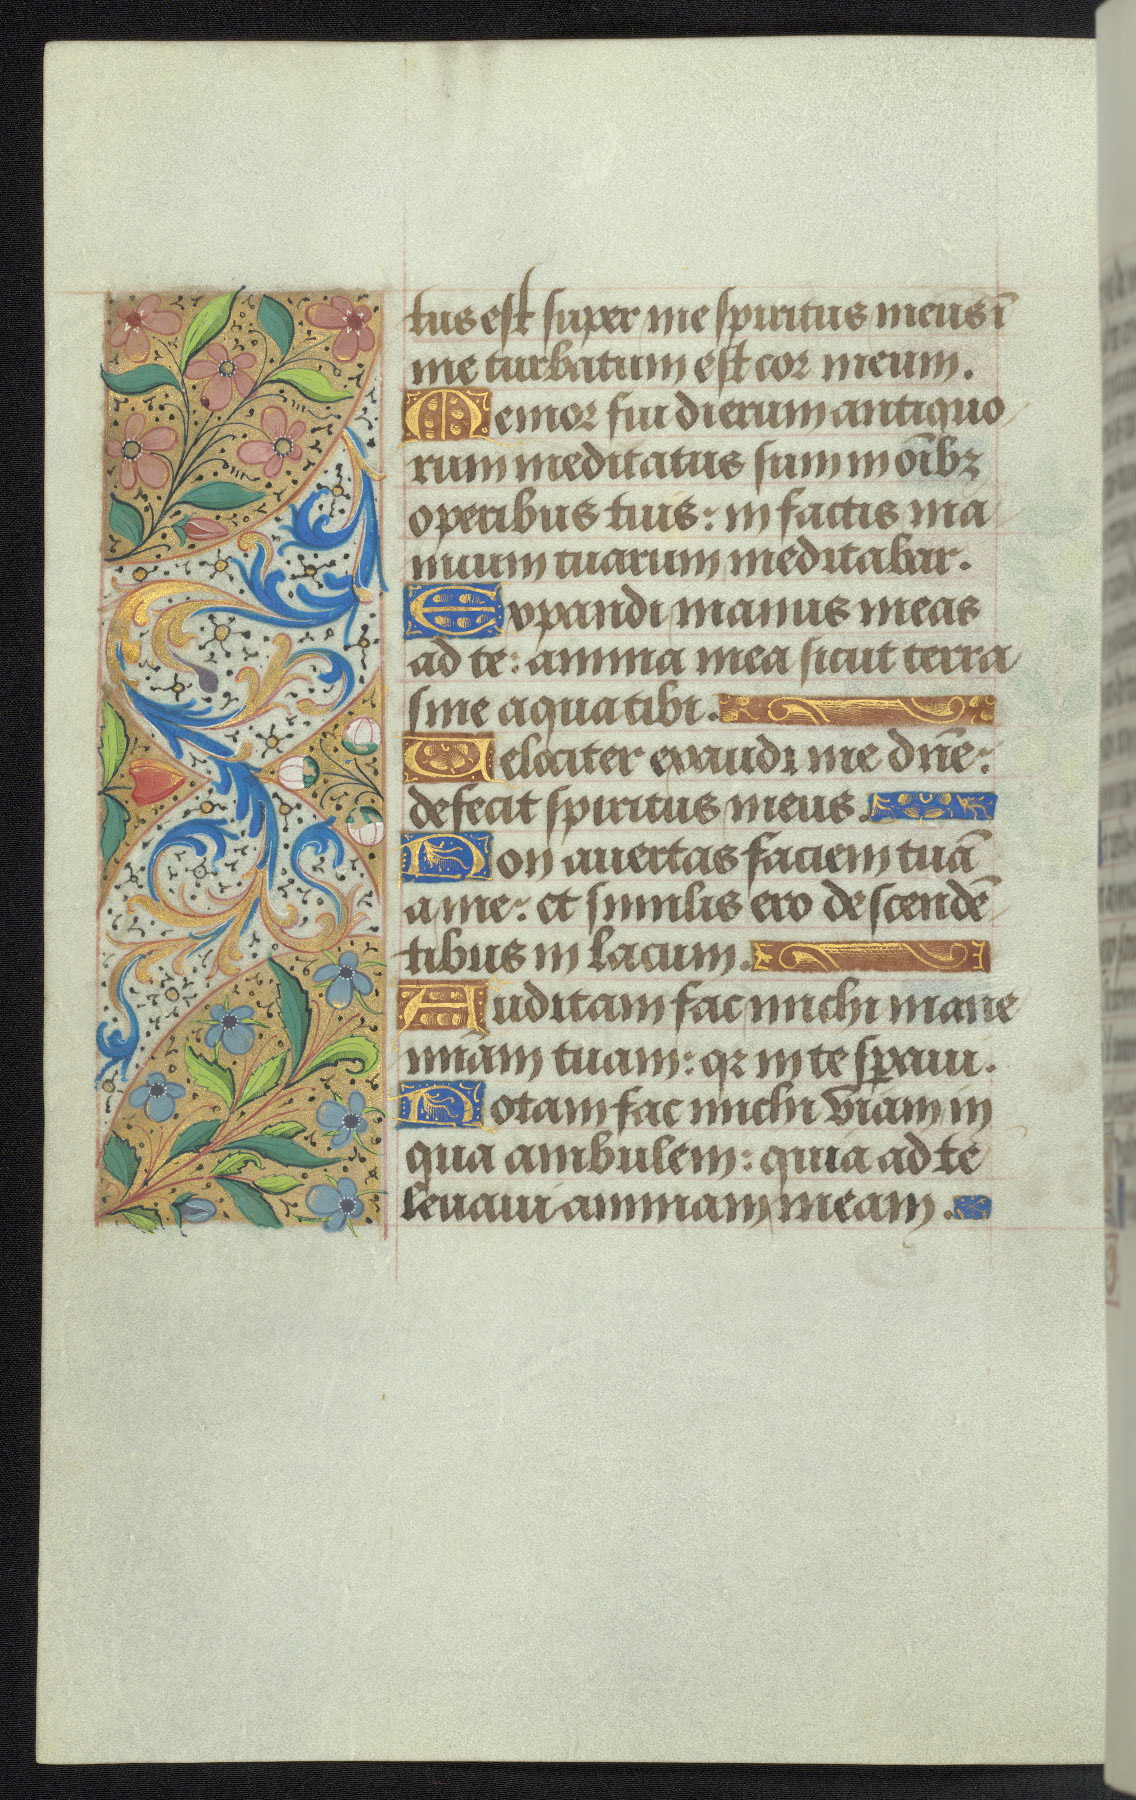 tus est super me spiritus meus ī
me turbatum est cor meum.
Memor fui dierum antiquo
rum meditatus sum in oībꝫ
operibus tuis: in factis ma
nuum tuarum meditabar.
Expandi manus meas
ad te: anima mea sicut terra
sine aqua tibi.
Velociter exaudi me dn̄e:
defecit spiritus meus.
Non auertas faciem tuā
a me: et similis ero descendē
tibus in lacum.
Auditam fac michi mane
miām tuam: qꝛ in te sꝑaui.
Notam fac michi viam in
qua ambulem: quia ad te
leuaui animam meam.